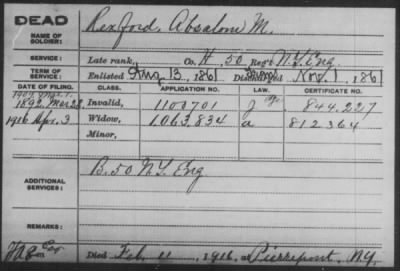 DEAD
NAME OF SOLDIER: Rexford, Absalom M.
SERVICE: Late rank, Co. H, 50 Reg't N.Y. Eng
TERM OF SERVICE: Enlisted Aug 13, 1861 Discharged Nov. 1, 1861
DATE OF FILING. CLASS. APPLICATION NO. LAW. CERTIFICATE NO.
1892 Mar 28 Invalid, 1103701 844.227
1916 Apr. 3 Widow, 1063,834 a 812364
Minor,
ADDITIONAL SERVICES: B. 50 N.Y. Eng
REMARKS:
Died Feb. 11, 1916, at Pierrepont, N.Y.